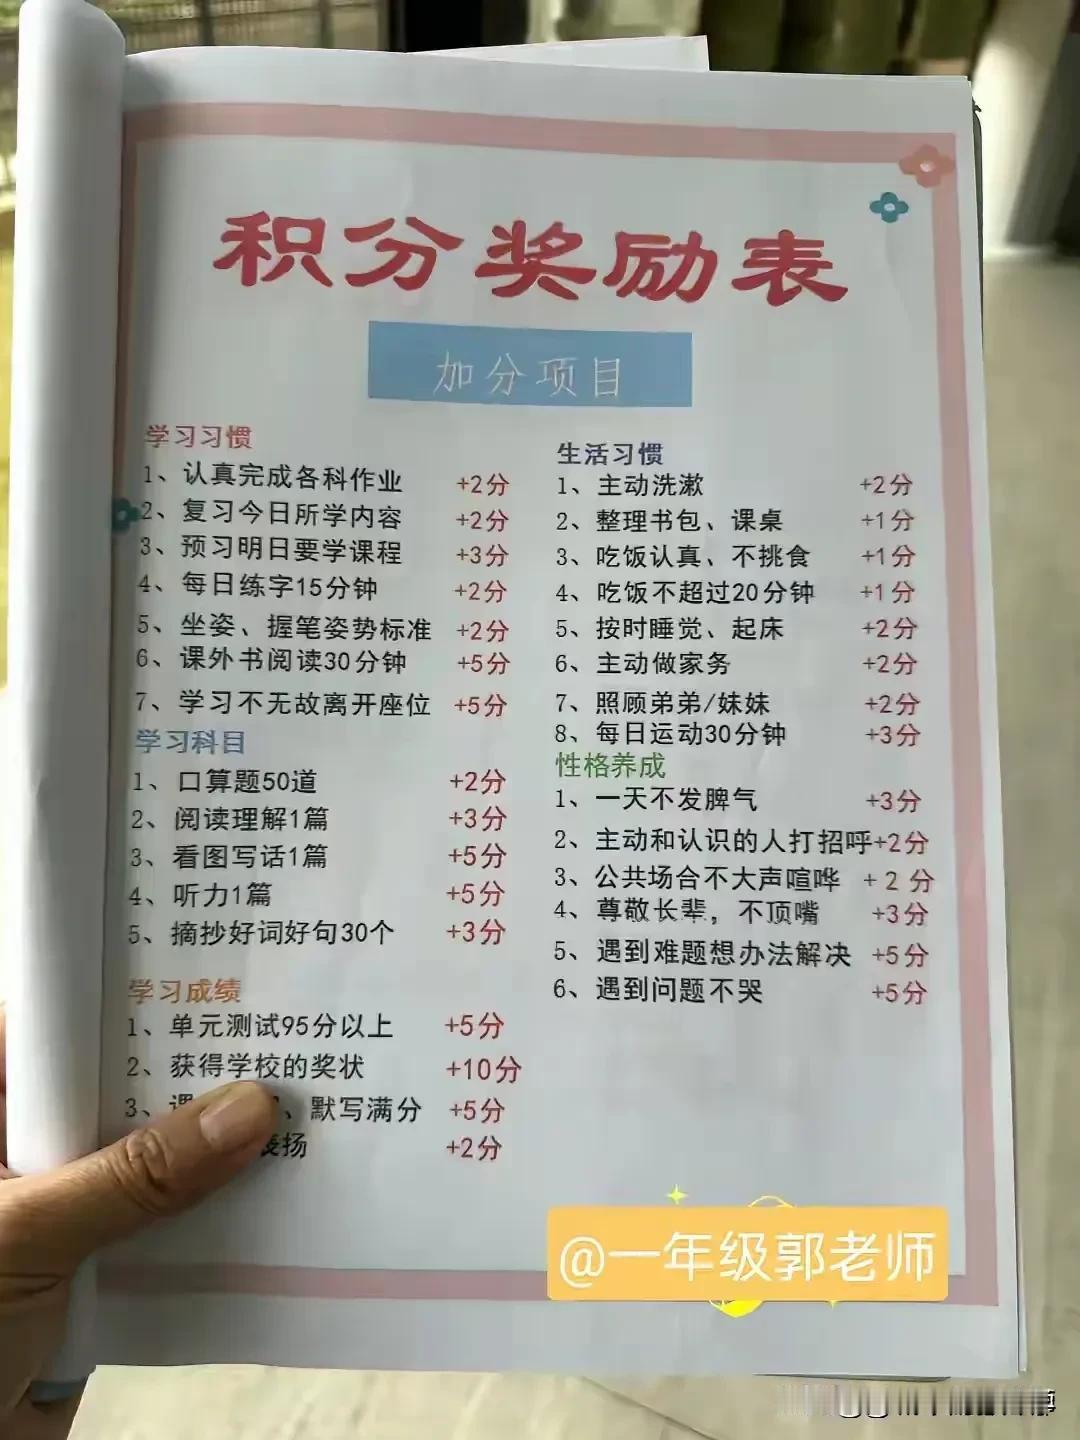 积分奖励表
加分项目
学习习惯
1、认真完成各科作业 +2分
2、复习今日所学内容 +2分
3、预习明日要学课程 +3分
4、每日练字15分钟 +2分
5、坐姿、握笔姿势标准 +2分
6、课外书阅读30分钟 +5分
7、学习不无故离开座位 +5分
学习科目
1、口算题50道 +2分
2、阅读理解1篇 +3分
3、看图写话1篇 +5分
4、听力1篇 +5分
5、摘抄好词好句30个 +3分
学习成绩
1、单元测试95分以上 +5分
2、获得学校的奖状 +10分
3、课 、默写满分 +5分
表扬 +2分
生活习惯
1、主动洗漱 +2分
2、整理书包、课桌 +1分
3、吃饭认真、不挑食 +1分
4、吃饭不超过20分钟 +1分
5、按时睡觉、起床 +2分
6、主动做家务 +2分
7、照顾弟弟/妹妹 +2分
8、每日运动30分钟 +3分
性格养成
1、一天不发脾气 +3分
2、主动和认识的人打招呼+2分
3、公共场合不大声喧哗 +2分
4、尊敬长辈，不顶嘴 +3分
5、遇到难题想办法解决 +5分
6、遇到问题不哭 +5分
@一年级郭老师